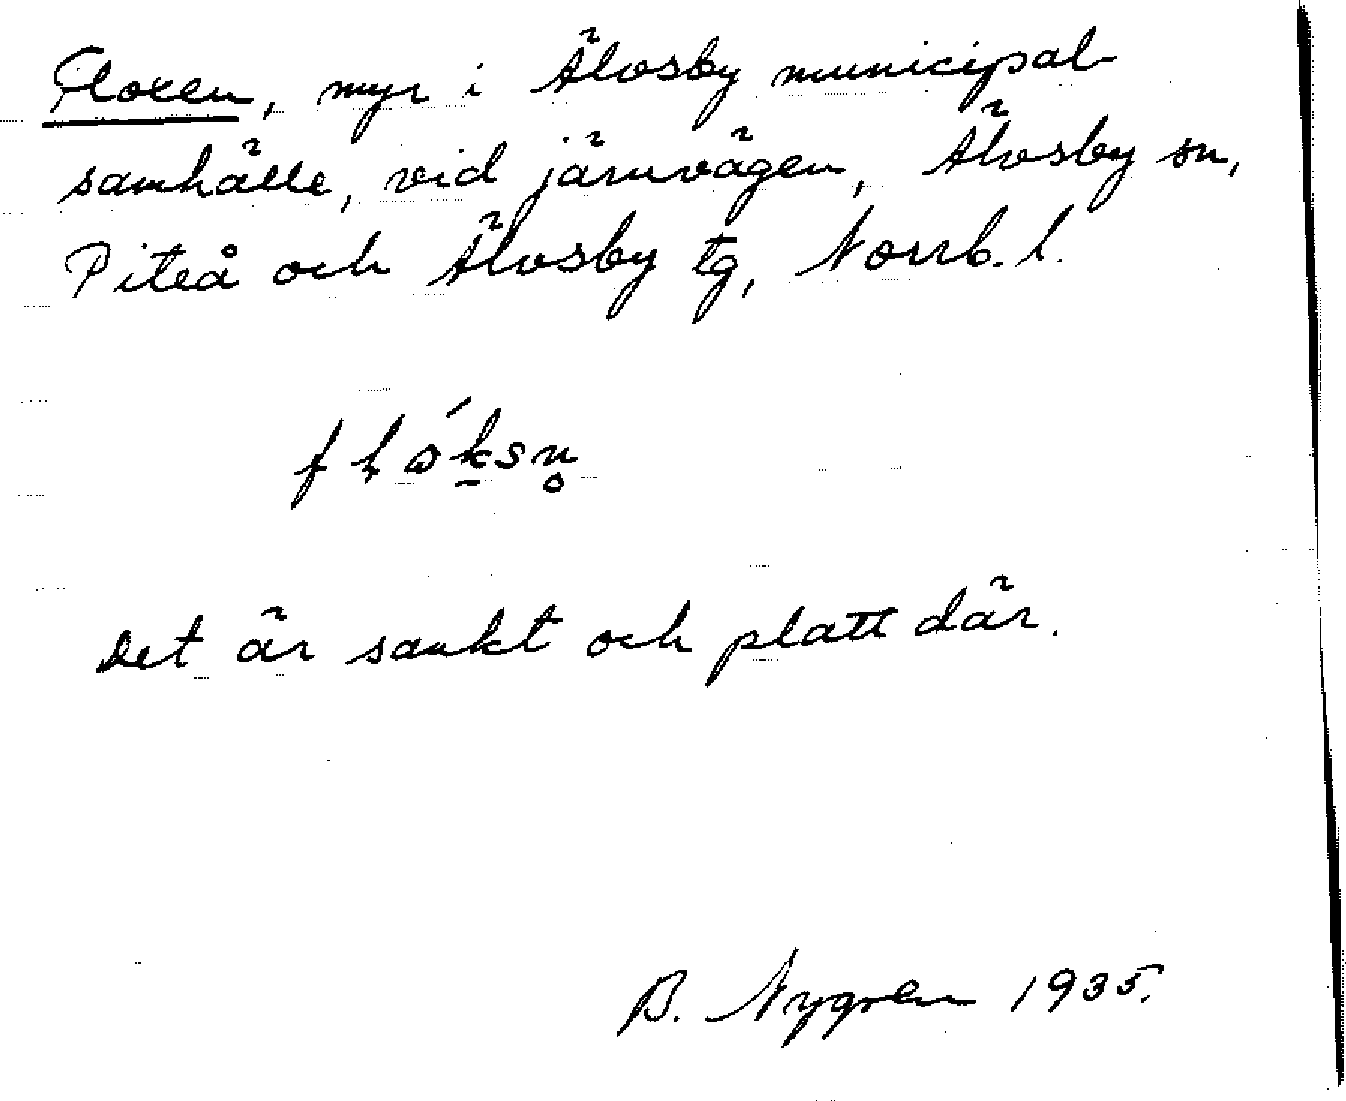 Floxen, myr i Älvsby municipal-
samhälle, vid järnvägen, Älvsby sn,
Piteå och Älvsby tg, Norrb. l.
Det är sankt och platt där.
B. Nygren 1935.